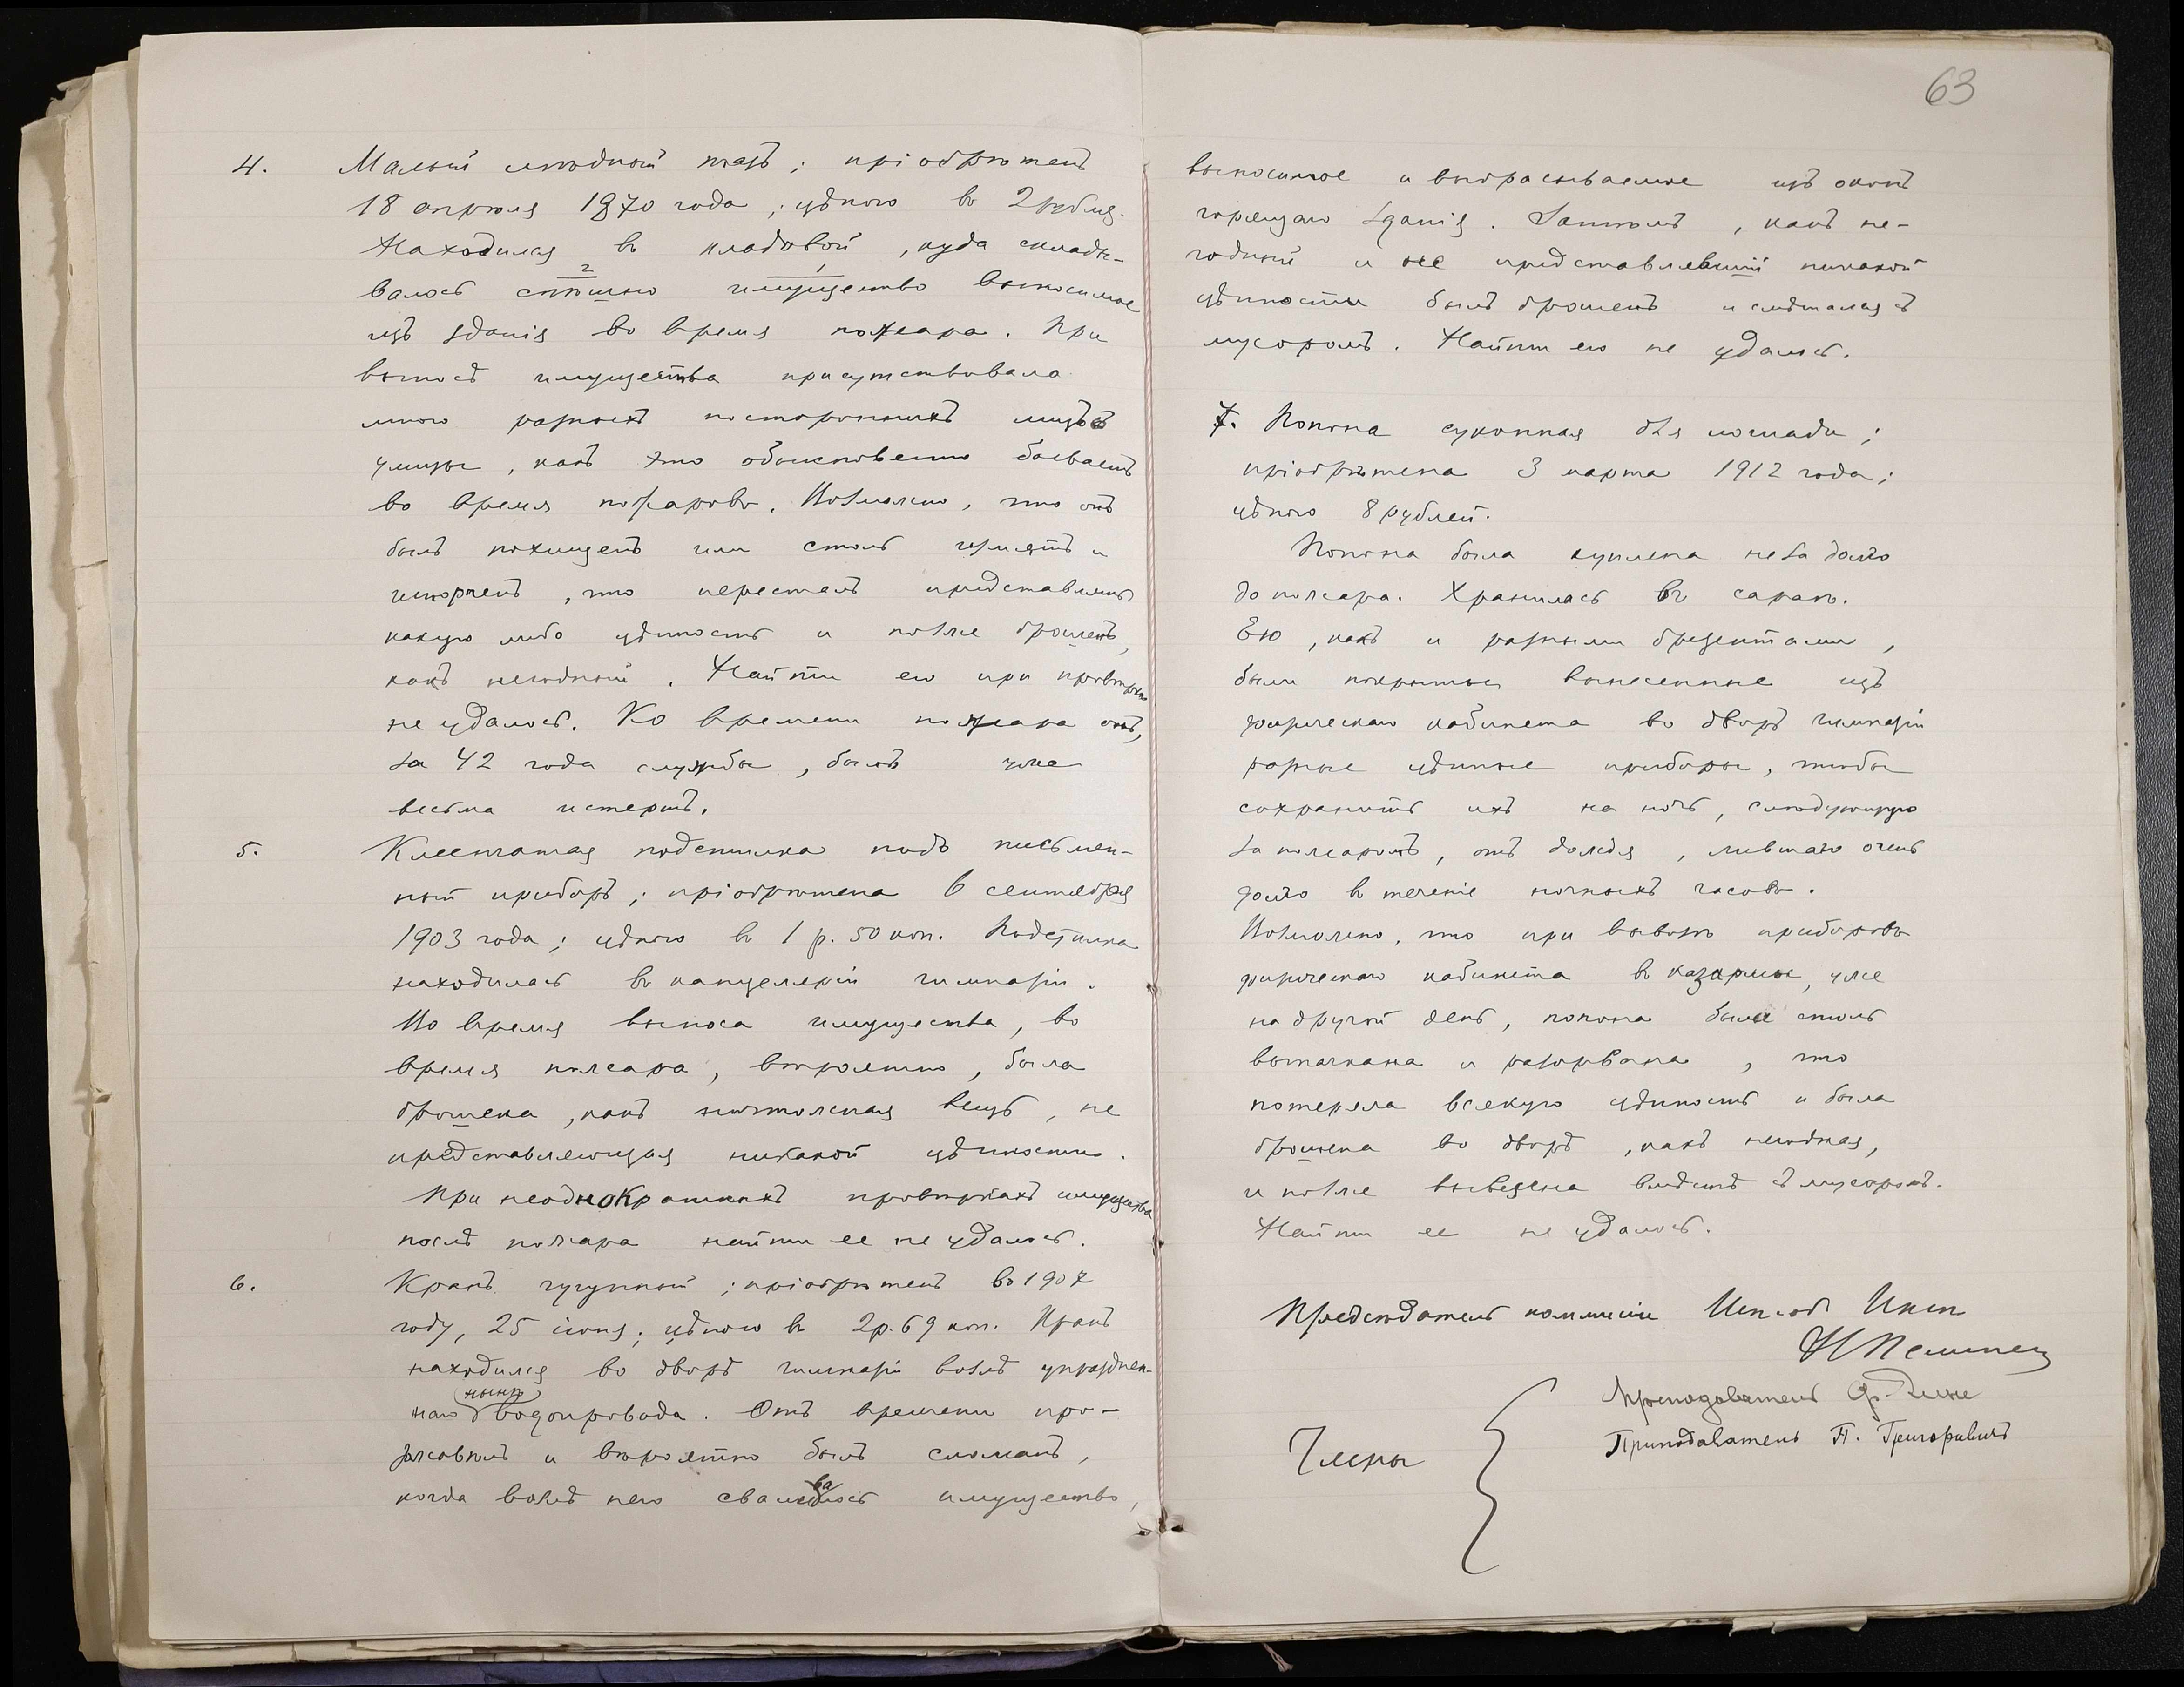 4. Малый мѣдный тазъ; пріобрѣтенъ
18 апрѣля 1870 года; цѣною въ 2 рубля.
Находился въ кладовой, куда склады-
валось спѣшно имущество выносимое
2 1
изъ зданія во время пожара. При
выносѣ имущества присутствовало
много разныхъ постороннихъ лицъ съ
улицы, какъ это обыкновенно бываетъ
во время пожаровъ. Возможно, что онъ
былъ похищенъ или столь измятъ и
испорченъ, что пересталъ представлять
какую либо цѣнность и позже брошенъ,
какъ негодный. Найти его при провѣркѣ
не удалось. Ко времени пожара онъ,
за 42 года службы, былъ уже
весьма истертъ.
5. Клеенчатая подстилка подъ письмен-
ный приборъ; пріобрѣтена 6 сентября
1903 года; цѣною въ 1 р. 50 коп. Подстилка
находилась въ канцеляріи гимназіи.
Во время выноса имущества, во
время пожара, вѣроятно, была
брошена, какъ ничтожная вещь, не
представляющая никакой цѣнности.
При неоднократныхъ провѣркахъ имущества
послѣ пожара найти ее не удалось.
6. Кранъ чугунный; пріобрѣтенъ въ 1907
году, 25 іюня; цѣною въ 2 р. 69 коп. Кранъ
находился во дворѣ гимназіи возлѣ упразднен-
наго нынѣ водопровода. Отъ времени про-
ржавѣлъ и вѣроятно былъ сломанъ,
когда возлѣ него сваливалось имущество,
63
выносимое и выбрасываемое изъ оконъ
горящаго зданія. Затѣмъ, какъ не-
годный и не представлявшій никакой
цѣнности былъ брошенъ и смѣшался съ
мусоромъ. Найти его не удалось.
7. Попона суконная для лошади;
пріобрѣтена 3 марта 1912 года;
цѣною 8 рублей.
Попона была куплена незадолго
до пожара. Хранилась въ сараѣ.
Ею, какъ и разными брезентами,
были покрыты вынесенные изъ
физическаго кабинета во дворъ гимназіи
разные цѣнные приборы, чтобы
сохранить ихъ на ночь, слѣдующую
за пожаромъ, отъ дождя, лившаго очень
долго въ теченіе ночныхъ часовъ.
Возможно, что при вывозѣ приборовъ
физическаго кабинета въ казармы, уже
на другой день, попона была столь
выпачкана и разорвана, что
потеряла всякую цѣнность и была
брошена во дворѣ, какъ негодная,
и позже вывезена вмѣстѣ съ мусоромъ.
Найти ее не удалось.
Предсѣдатель коммисіи
Члены
Преподаватель
Преподаватель П. Григоровичъ